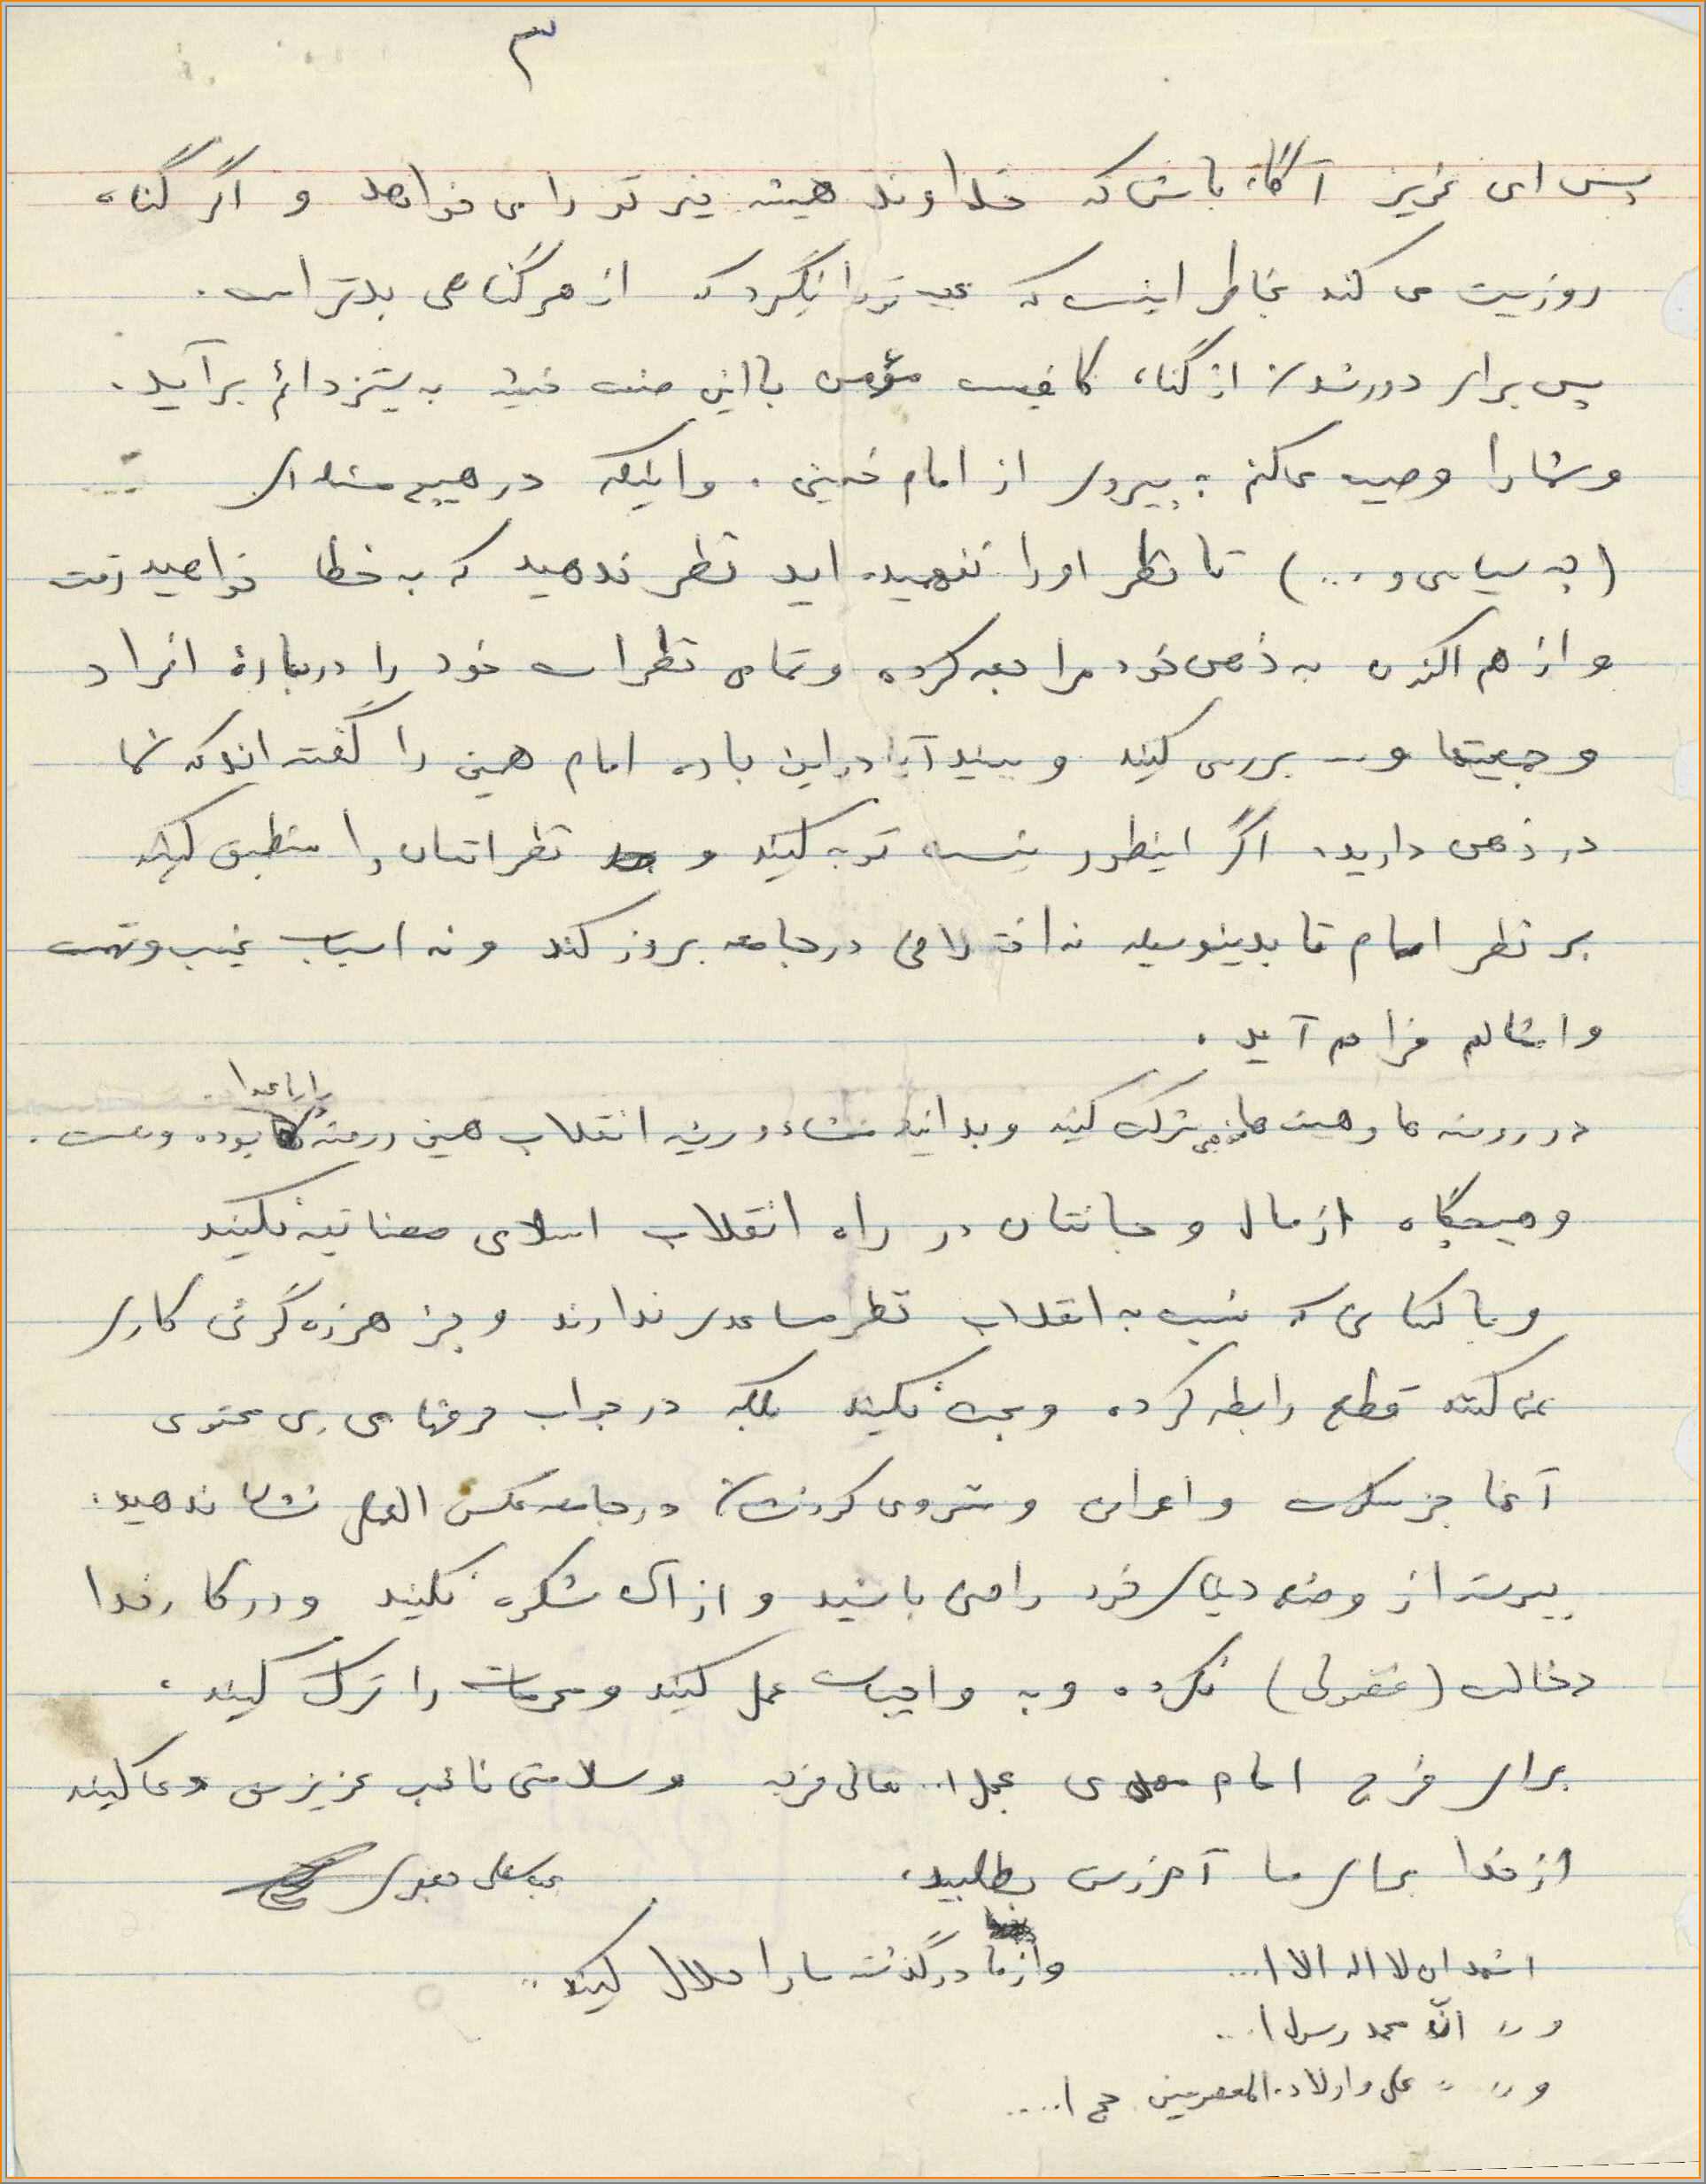 ۳
پس ای عزیز آگاه باش که خداوند همیشه خیر تو را می خواهد و اگر گناه
روزیت می کند بخاطر اینست که عجب تو را نگیرد که از هر گناهی بدتر است.
پس برای دور شدن از گناه، کافیست مؤمن با این صفت خبیثه به ستیز دائم برآید.
وشما را وصیت میکنم به پیروی از امام خمینی. و اینکه در هیچ مسئله ای
(چه سیاسی و ...) تا نظر او را نفهمیده اید نظر ندهید که به خطا خواهید رفت
و از هم اکنون به ذهن خود مراجعه کرده و تمامی نظرات خود را درباره افراد
و جمعیتها و... بررسی کنید و ببینید آیا در این باره امام همین را گفته اند که شما
در ذهن دارید. اگر اینطور نیست توبه کنید و نظراتتان را منطبق کنید
بر نظر امام تا بدینوسیله نه اختلافی در جامعه بروز کند و نه اسباب غیبت و تهمت
و امثالهم فراهم آید.
در روضه ها و هیئت ها شرکت کنید و بدانید منشاء و ریشه انقلاب همین روضه ها بوده و هست.
و هیچگاه از مال و جانتان در راه انقلاب اسلامی مضایقه نکنید
و با کسانی که نسبت به انقلاب نظر مساعدی ندارند و جز هرزه گوئی کاری
نمی کنند قطع رابطه کرده و بحث نکنید بلکه در جواب حرفهای بی محتوی
آنها جز سکوت و اعراض و منزوی کردنشان در جامعه عکس العمل نشان ندهید.
پیوسته از وضع دنیای خود راضی باشید و از آن شکوه نکنید و در کار خدا
دخالت (فضولی) نکرده و به واجبات عمل کنید و محرمات را ترک کنید.
برای فرج امام مهدی عجل ا.. تعالی فرجه و سلامتی نائب عزیزش دعا کنید
از خدا برای ما آمرزش بطلبید.
و از ما درگذشته ما را حلال کنید..
اشهد ان لا اله الا ا...
و " انّ محمد رسول ا...
و " " علی و اولاده المعصومین حجج ا.....